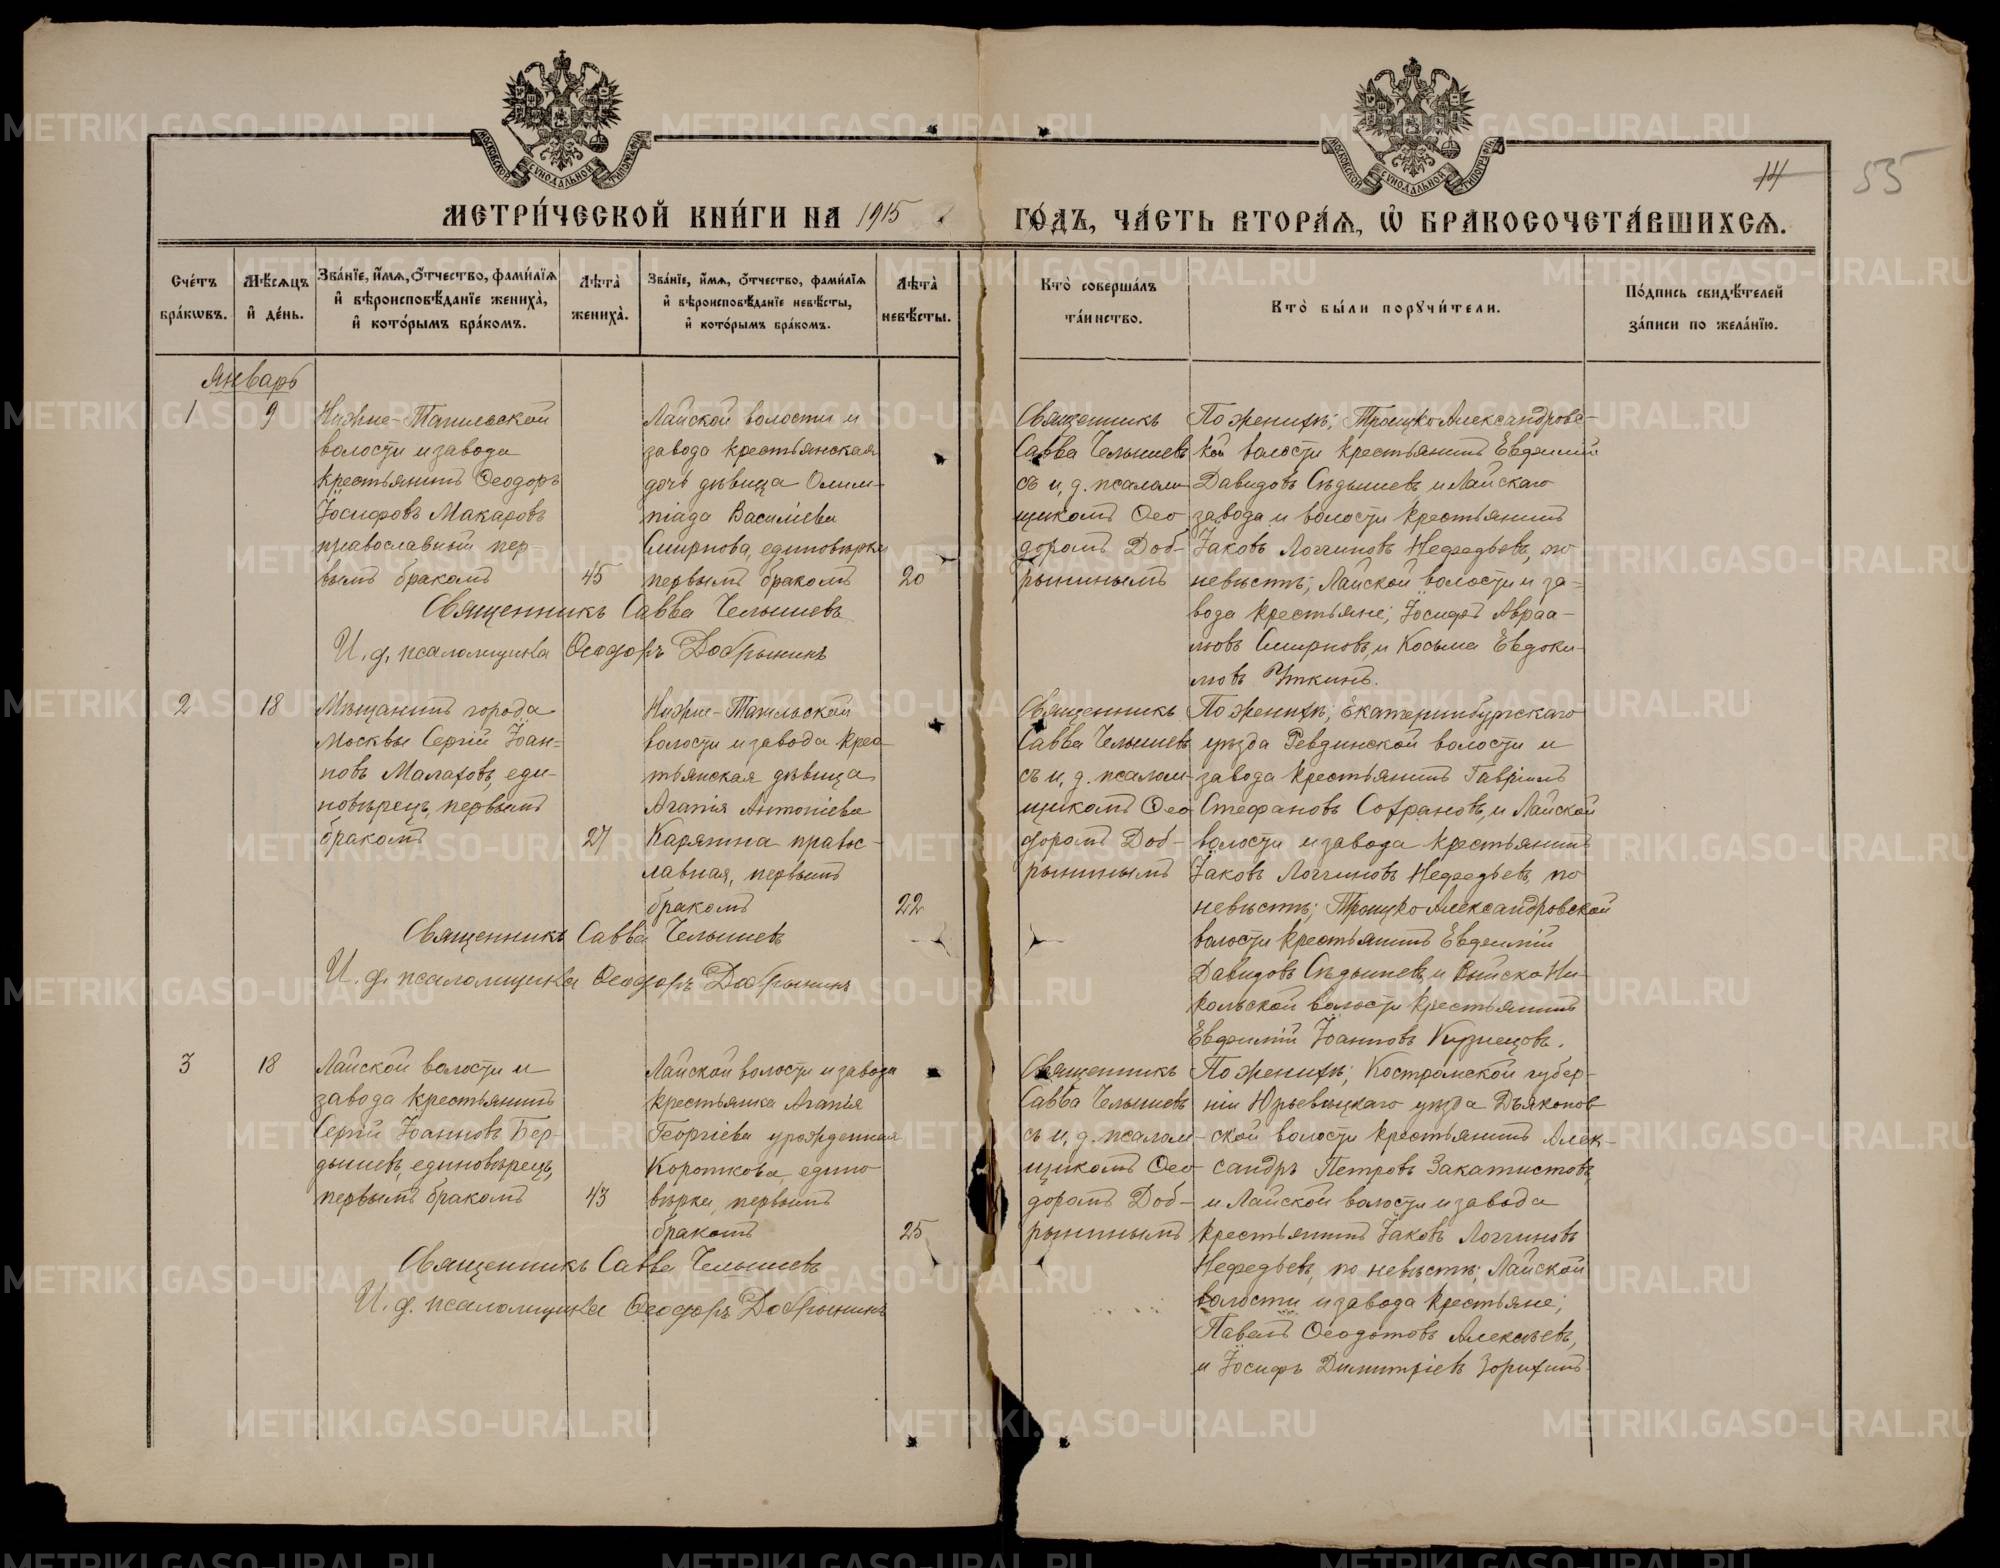 14 55
МЕТРИ́ЧЕСКОЙ КНИ́ГИ НА 1915 ГО́ДЪ, ЧА́СТЬ ВТОРА́Я, Ѡ҆ БРАКОСОЧЕТА́ВШИХСѦ.
Сче́тъ бра́кѡвъ.
Мѣ́сяцъ и҆ де́нь.
Зва́нїе, и҆́мѧ, ѻ҆́тчество, фами́лїѧ и҆ вѣроисповѣ́данїе жениха̀, и҆ кото́рымъ бра́комъ.
Лѣ́та̀ жениха̀.
Зва́нїе, и҆́мѧ, ѻ҆́тчество, фами́лїѧ и҆ вѣроисповѣ́данїе невѣ́сты, и҆ кото́рымъ бра́комъ.
Лѣ́та̀ невѣ́сты.
Кто̀ соверша́лъ та́инство.
Кто̀ бы́ли порꙋчи́тели.
По́дпись свидѣ́телей за́писи по жела́нїю.
Январь
1
9
Нижне-Тагильской
волости и завода
крестьянинъ Ѳеодоръ
Іосифовъ Макаровъ
православный пер-
вымъ бракомъ
45
Лайской волости и
завода крестьянская
дочь дѣвица Олим-
піада Василіева
Смирнова, единовѣрка
первымъ бракомъ
20
Священникъ
Савва Челышевъ
съ и, д. псалом-
щикомъ Ѳео
доромъ Доб-
рынинымъ
По женихѣ; Троицко Александровс-
кой волости крестьянинъ Евѳимій
Давидовъ Сѣдышевъ, и Лайскаго
завода и волости крестьянинъ
Іаковъ Логгиновъ Нефедьевъ, по
невѣстѣ; Лайской волости и за=
вода крестьяне; Іосифъ Авраа-
мовъ Смирновъ, и Косьма Евдоки-
мовъ Уткинъ.
Священникъ Савва Челышевъ
И. д. псаломщика Ѳеодоръ Добрынинъ
2
18
Мѣщанинъ города
Москвы Сергій Іоан=
новъ Малаховъ, еди-
новѣрецъ, первымъ
бракомъ
27
Нижне-Тагильской
волости и завода крес-
тьянская дѣвица
Агапія Антоніева
Карягина правос-
лавная, первымъ
бракомъ
22
Священникъ
Савва Челышевъ
съ и, д. псалом-
щикомъ Ѳео
доромъ Доб-
рынинымъ
По женихѣ; Екатеринбургскаго
уѣзда Ревдинской волости и
завода крестьянинъ Гавріилъ
Стефановъ Софроновъ, и Лайской
волости и завода крестьянинъ
Іаковъ Логгиновъ Нефедьевъ, по
невѣстѣ; Троицко Александровской
волости крестьянинъ Евѳимій
Давидовъ Сѣдышевъ, и Выйско Ни-
кольской волости крестьянинъ
Евѳимій Іоанновъ Кузнецовъ.
Священникъ Савва Челышевъ
И. д. псаломщика Ѳеодоръ Добрынинъ
3
18
Лайской волости и
завода крестьянинъ
Сергій Іоанновъ Бер-
дышевъ, единовѣрецъ,
первымъ бракомъ
43
Лайской волости и завода
крестьянка Агапія
Георгіева урожденная
Короткова, едино
вѣрка, первымъ
бракомъ
25
Священникъ
Савва Челышевъ
съ и, д. псалом-
щикомъ Ѳео
доромъ Доб-
рынинымъ
По женихѣ; Костромской губер-
ніи Юрьевецкаго уѣзда Дьяконов
ской волости крестьянинъ Алек-
сандръ Петровъ Закатистовъ,
и Лайской волости и завода
крестьянинъ Іаковъ Логгиновъ
Нефедьевъ, по невѣстѣ; Лайской
волости и завода крестьяне;
Павелъ Ѳеодотовъ Алексѣевъ,
и Іосифъ Димитріевъ Зорихинъ
Священникъ Савва Челышевъ
И. д. псаломщика Ѳеодоръ Добрынинъ
METRIKI.GASO-URAL.RU